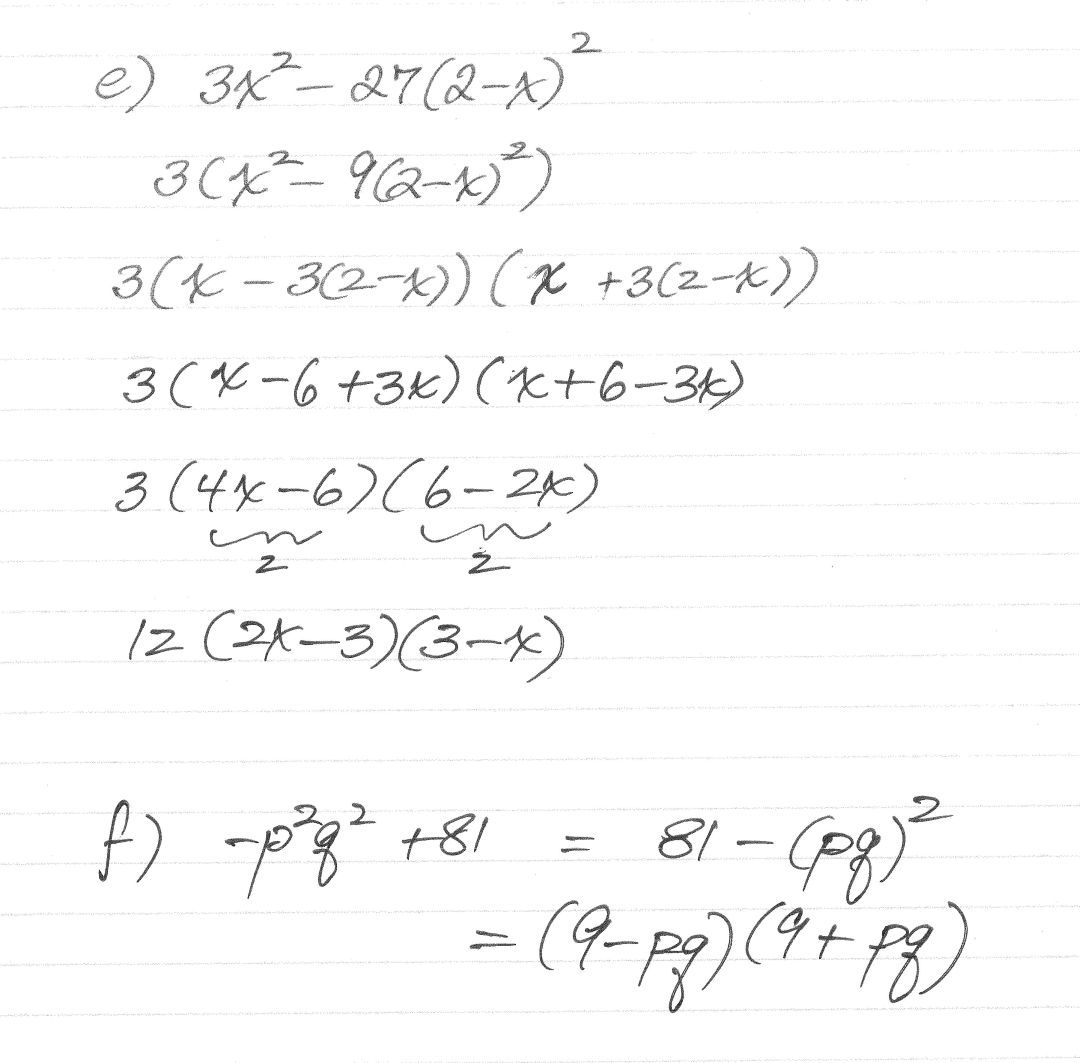 e) 3x² − 27(2−x)²
3(x² − 9(2−x)²)
3(x − 3(2−x))(x +3(2−x))
3(x−6+3x)(x+6−3x)
3(4x−6)(6−2x)
2 2
12(2x−3)(3−x)
f) −p²q² +81 = 81 − (pq)²
= (9−pq)(9+pq)